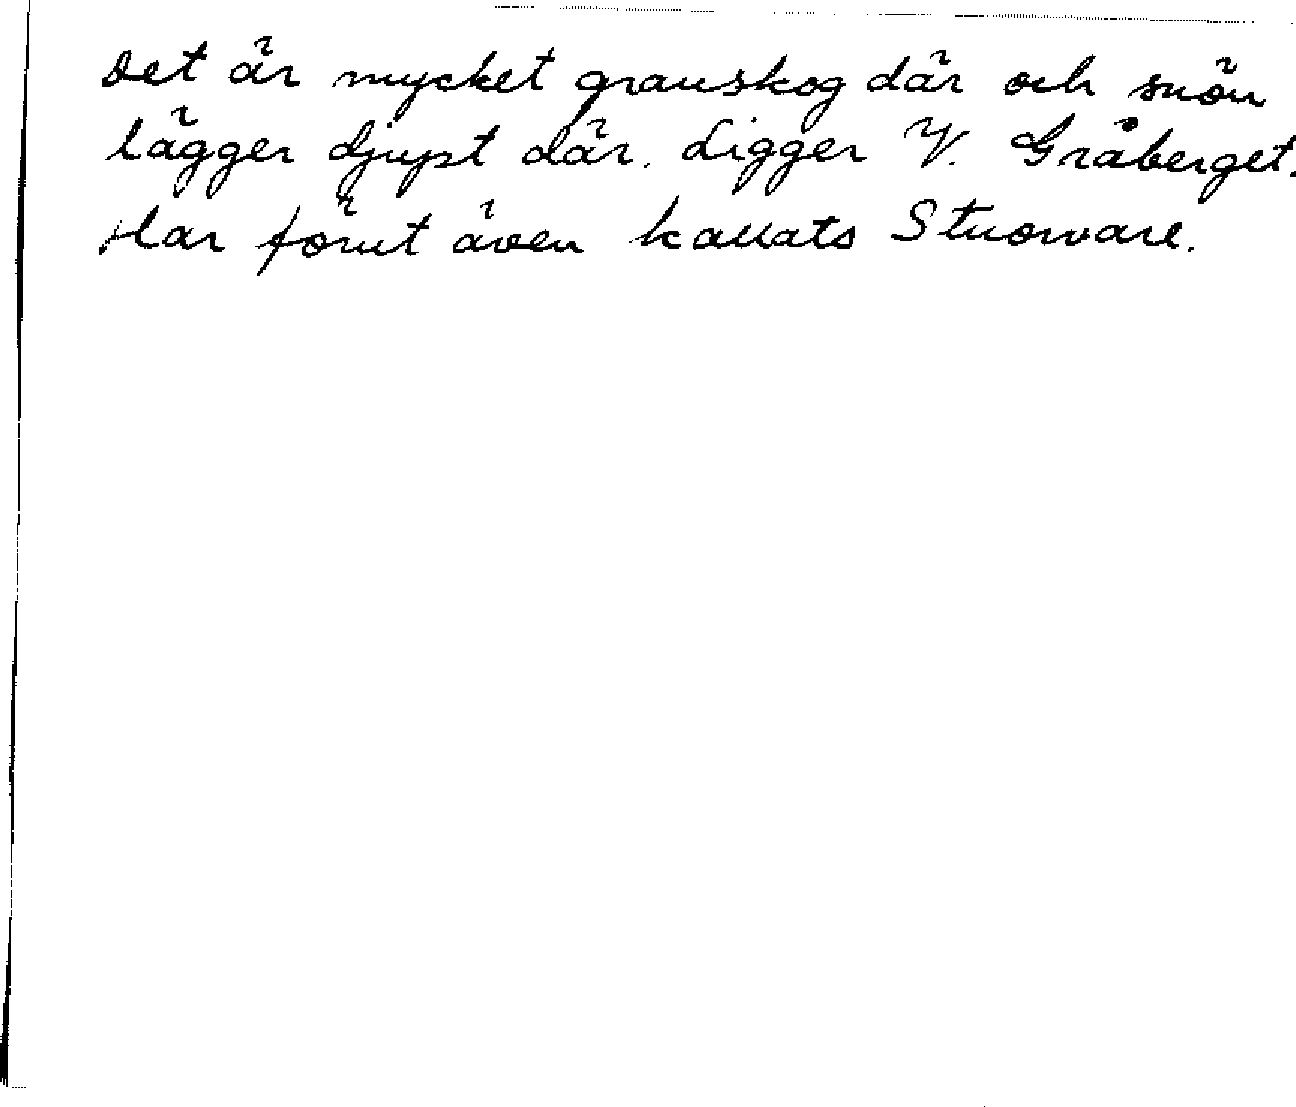 Det är mycket granskog där och snön
lägger djupt där. Ligger V. Gråberget.
Har förut även kallats Stuorvare.